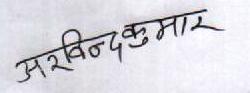 अरविन्दकुमार